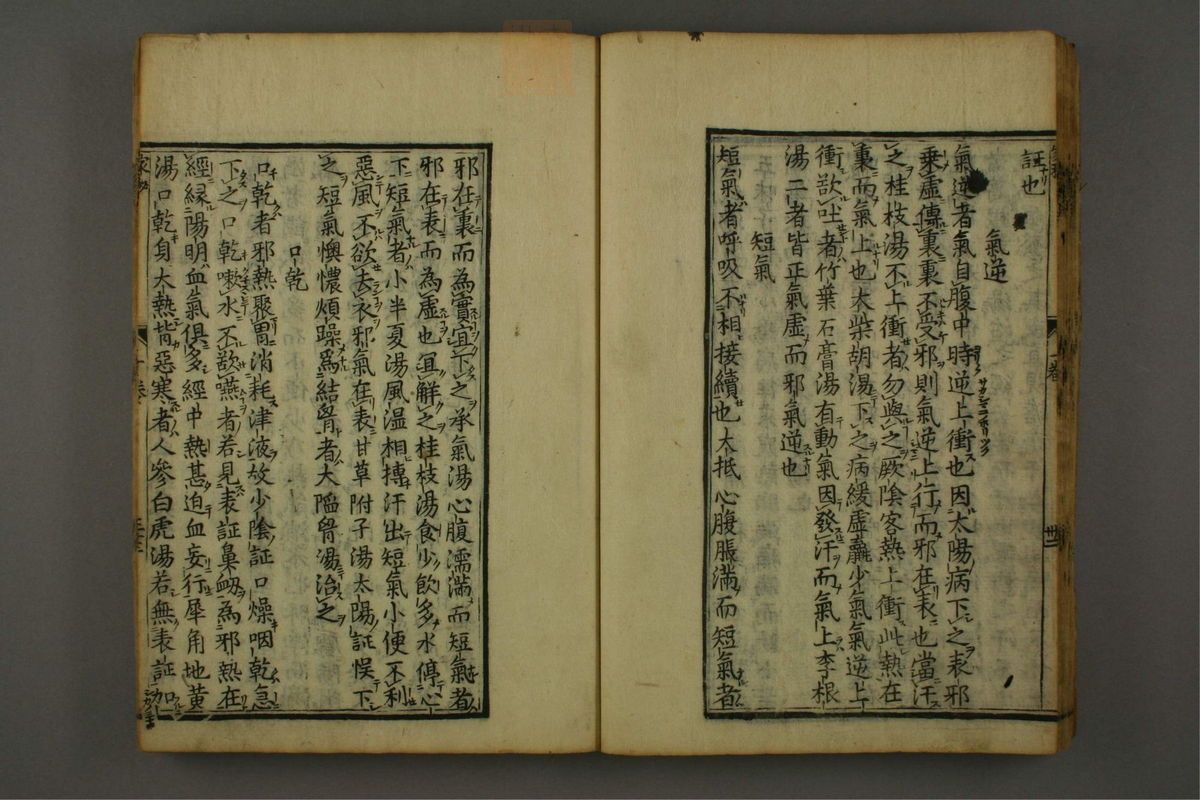 証也
氣逆
氣逆者氣自腹中時逆上衝也因太陽病下之表邪
乘虛傳裏裏不受邪則氣逆上行而邪在表也當汗
之桂枝湯不上衝者勿與之厥陰客熱上衝此熱在
裏而氣上也大柴胡湯下之病緩虛羸少氣氣逆上
衝欲吐者竹葉石膏湯有動氣因發汗而氣上李根
湯二者皆正氣虛而邪氣逆也
短氣
短氣者呼吸不相接續也大抵心腹脹滿而短氣者
邪在裏而為實宜下之承氣湯心腹濡滿而短氣者
邪在表而為虛也宜解之桂枝湯食少飲多水停心
下短氣者小半夏湯風温相搏汗出短氣小便不利
惡風不欲去衣邪氣在表甘草附子湯太陽証悞下
之短氣懊憹煩躁為結胷者大陷胷湯治之
口乾
口乾者邪熱聚胃消耗津液故少陰証口燥咽乾急
下之口乾嗽水不欲嚥者若見表証鼻衂為邪熱在
經縁陽明血氣俱多經中熱甚迫血妄行犀角地黄
湯口乾身大熱背惡寒者人參白虎湯若無表証口